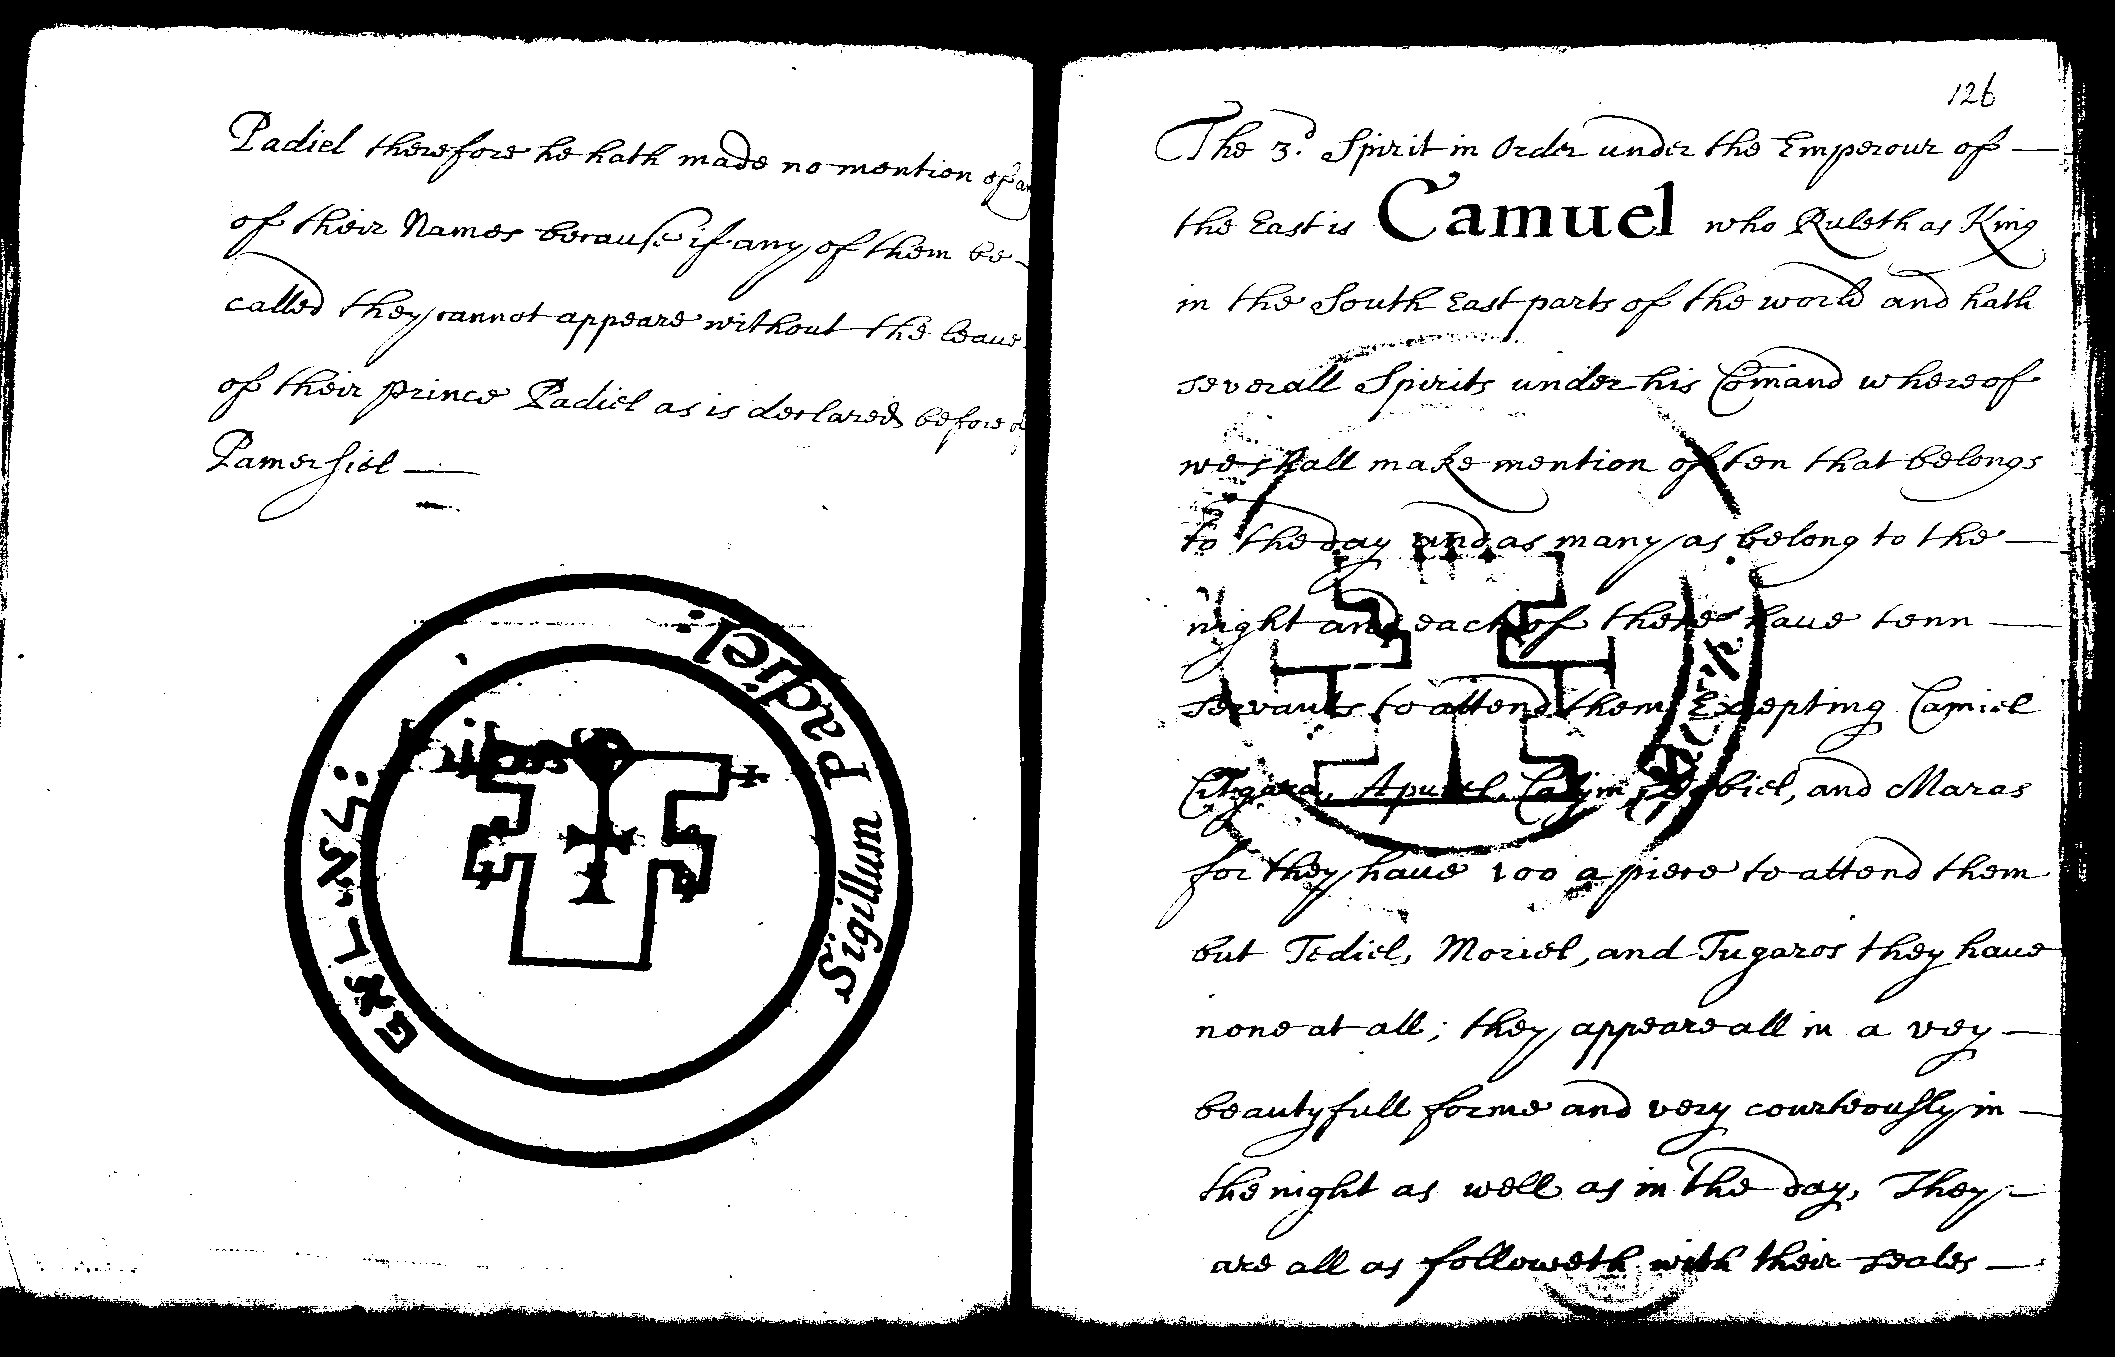 Padiel therefore he hath made no mention of
of their Names because if any of them be
called they cannot appeare without the leave
of their prince Padiel as is declared before
Pamersiel
Sigillum Padiel:
126
The 3.d Spirit in Order under the Emperour of
the East is Camuel who Ruleth as King
in the South East parts of the world and hath
severall Spirits under his Comand whereof
we shall make mention of ten that belongs
to the day and as many as belong to the
night and each of these have tenn
servants to attend them Excepting Camiel
Citgara, Apuiel, Calym, and Maras
for they have 100 a piece to attend them
but Tediel, Moriel, and Tugaros they have
none at all; they appeare all in a vey
beautyfull forme and very courteously in
the night as well as in the day, They
are all as followeth with their seales